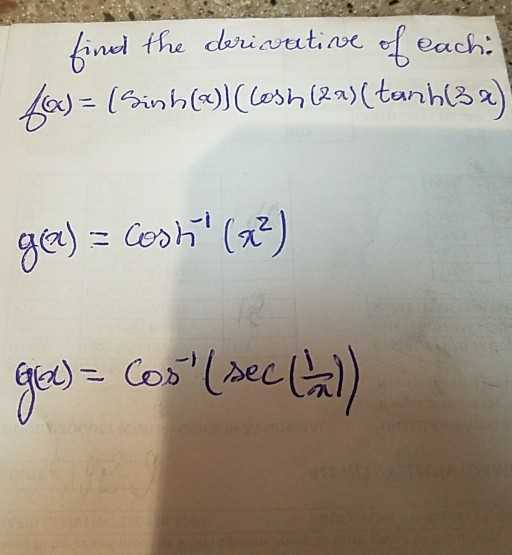 find the derivative of each:
f(x) = (Sinh(x))(Cosh(2x)(tanh(3x)
g(x) = Cosh⁻¹(x²)
g(x) = Cos⁻¹(sec(1/x))